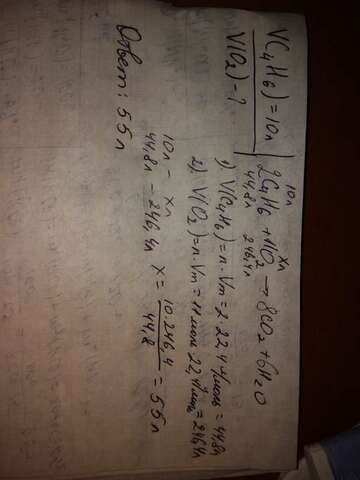 V(C₄H₆) = 10л
V(O₂) - ?
10л xл
2C₄H₆ + 11O₂ → 8CO₂ + 6H₂O
44,8л 246,4л
1) V(C₄H₆) = n · Vm = 2 · 22,4 л/моль = 44,8л
2) V(O₂) = n · Vm = 11 моль · 22,4 л/моль = 246,4л
10л - xл
44,8л - 246,4л x = 10 · 246,4 / 44,8 = 55л
Ответ: 55л